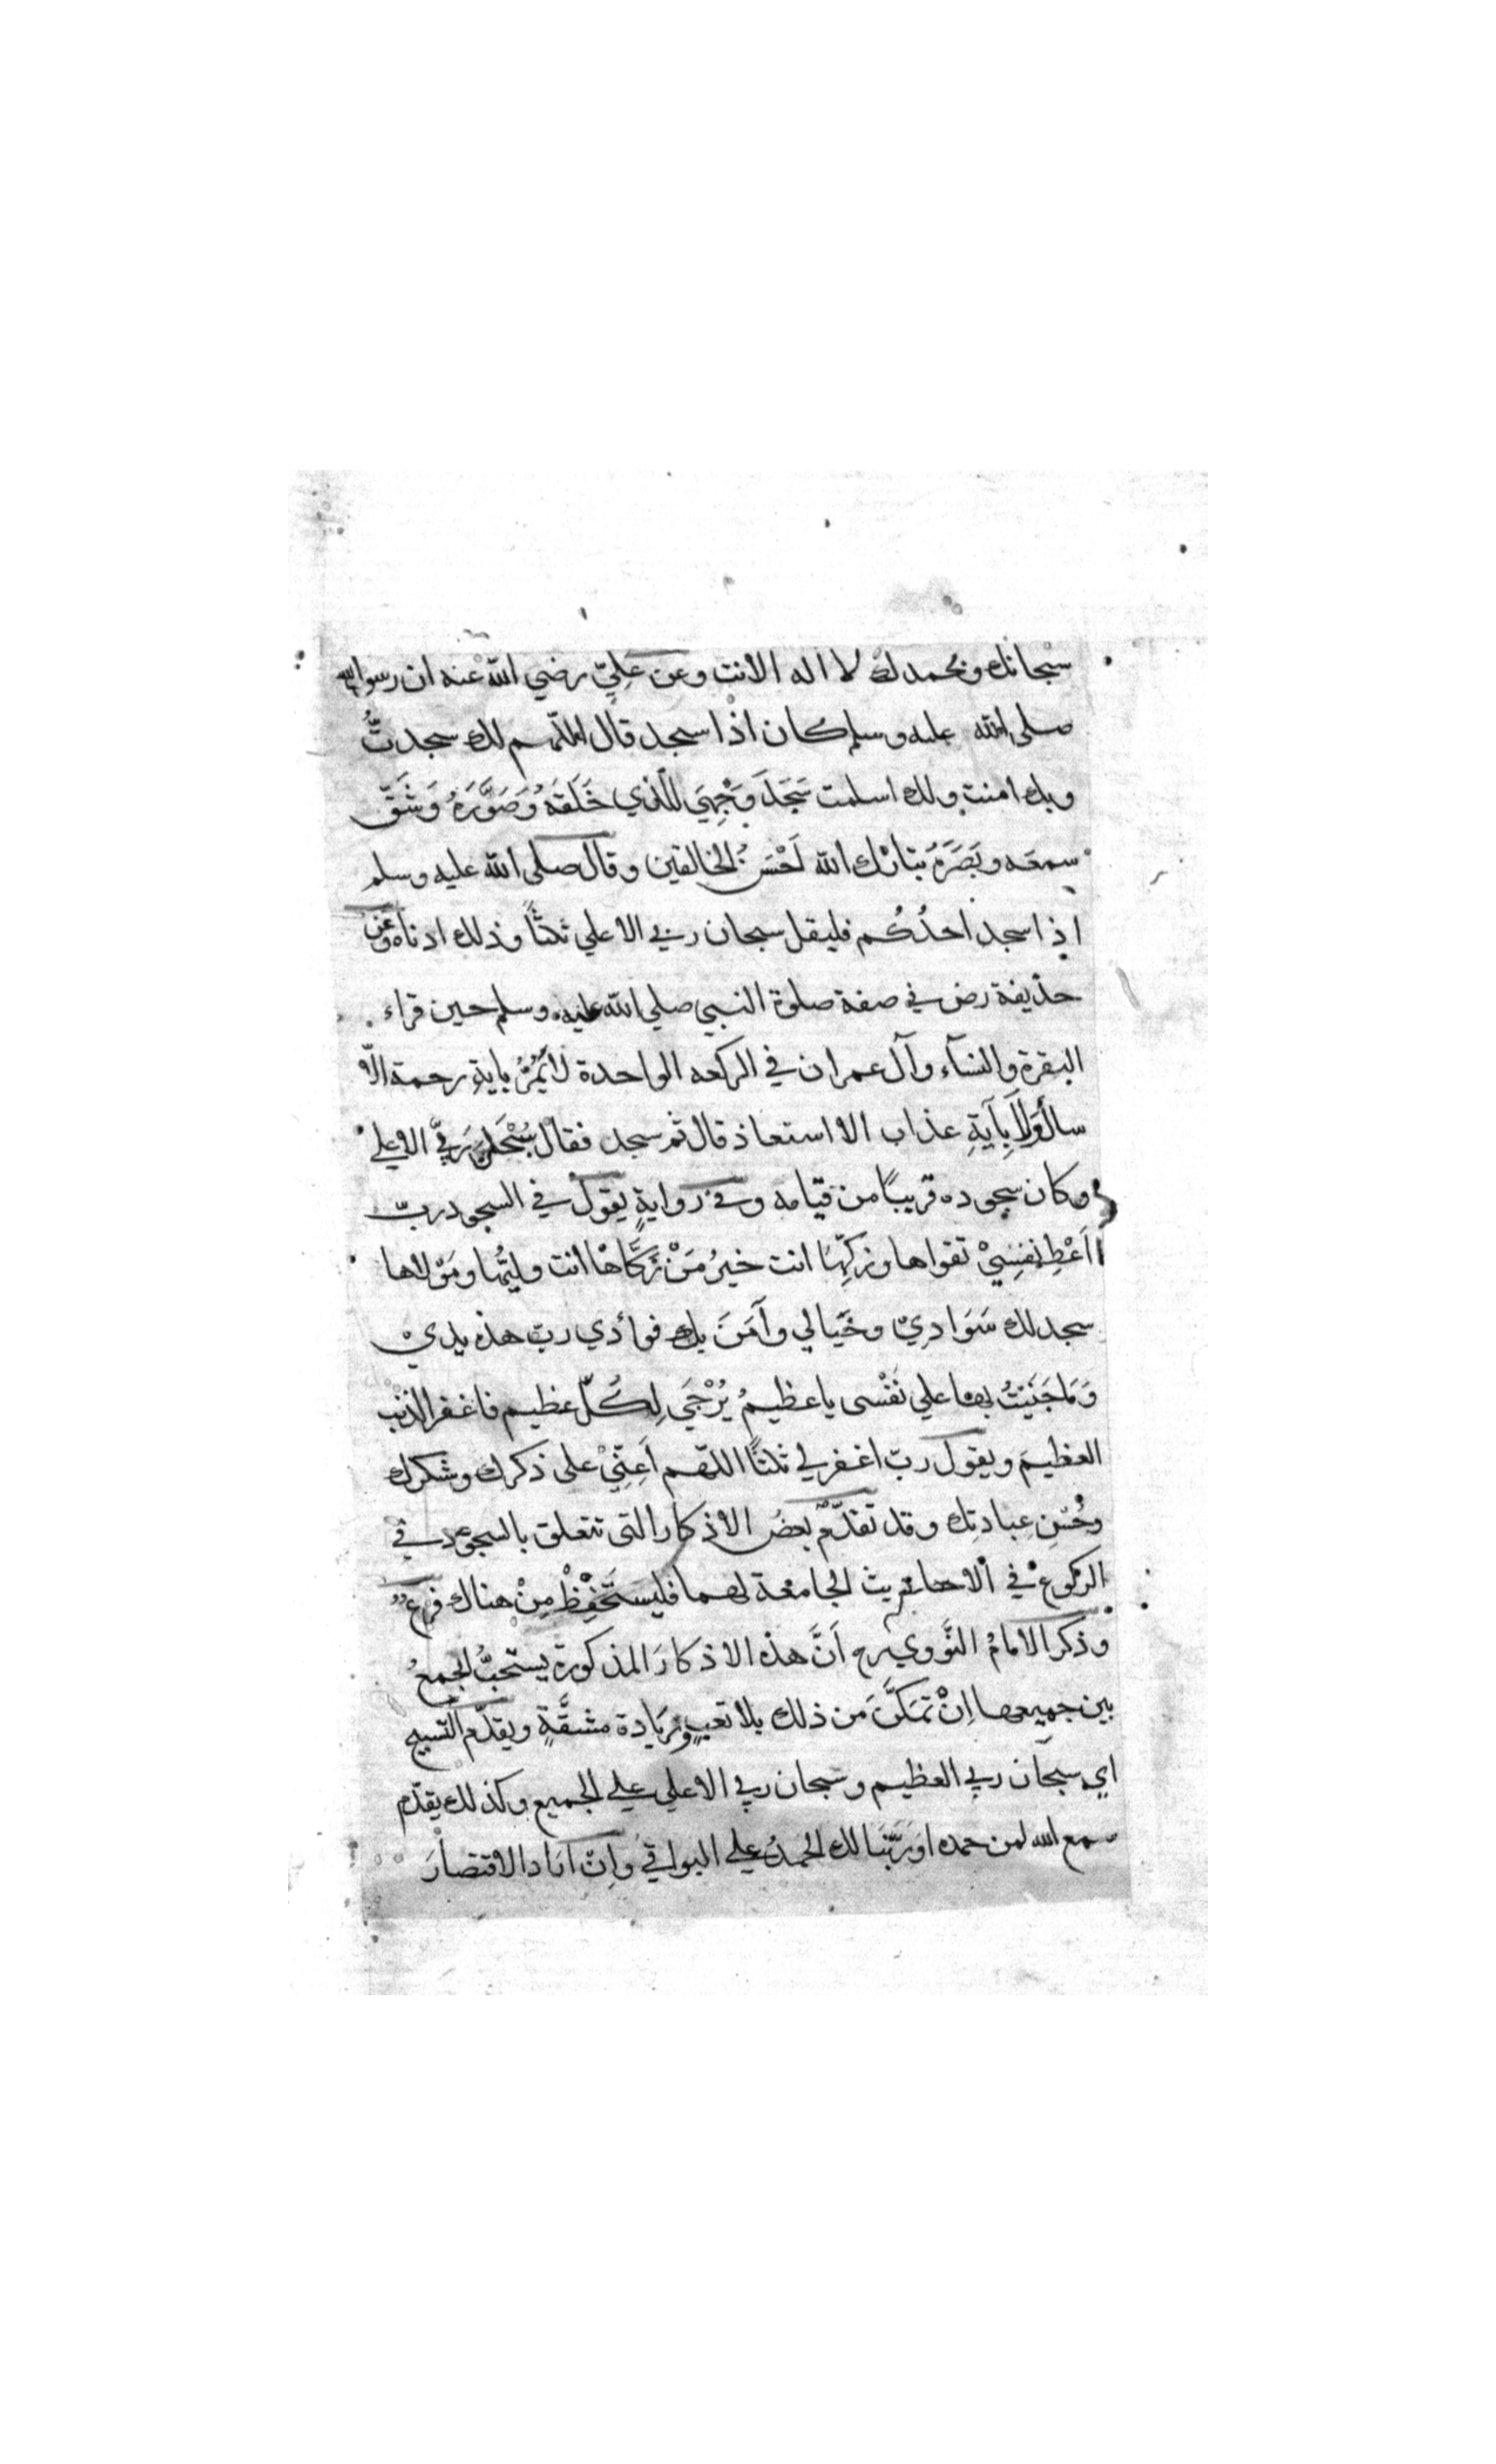 سبحانك وبحمدك لا اله الا انت وعن عَلِيّ رضي الله عنه ان رسول الله
صلى الله عليه وسلم كان اذا سجد قال اللّهم لك سجدتُ
وبك امنت ولك اسلمت سَجَدَ وَجْهِيَ للذي خَلَقَهُ وَصَوَّرَهُ وَشَقَّ
سمعَه وبَصَرَهُ تبارك الله اَحْسَنُ الخالقين وقال صلى الله عليه وسلم
اذا سجد احدُكُم فليقل سبحان ربي الاعلي ثلثًا وذلك ادناه وعن
حذيفة رض في صفة صلوة النبي صلي الله عليه وسلم حين قراء
البقرة والنسآء وآل عمران في الركعه الواحدة لا يَمُرُّ باية رحمة الّا
سال وَلَا بِآيَةِ عذاب الا استعاذ قال ثم سجد فقال سُبْحَان رَبِّيَ الاعلي
وكان سجوده قريبًا من قيامه وفي روايةٍ يقول في السجود ربّ
اَعْطِ نفسِيْ تقواها وزكِّهَا انت خيرُ مَنْ زَكَّاهَا انت وليُّها ومَوْلاها
سجد لك سَوَادِيْ وخَيَالي وآمَنَ بك فوأدي ربّ هذه يديْ
وَمَا جَنَيْتُ بها علي نَفْسى يا عظيمُ يُرْجَي لِكُلّ عظيم فاغفر الذنب
العظيمَ ويقول ربّ اغفر لي ثلثًا اللهم اَعِنِّيْ على ذكرك وشكرك
وحُسْنِ عِبادتِك وقد تقدّم بعضُ الاذكار التى تتعلق بالسجود في
الركوع في الاحاديث الجامعة لهما فليستَحْفِظْ مِنْ هناك فرع
وذكر الامامُ النَّووي رح اَنَّ هذه الاذكارَ المذكورة يستحبُّ الجمعُ
بين جميعها اِنْ تمَكَّنَ مَن ذلك بلا تعبٍ وزِيَادة مشقَّةٍ ويقدّم التسبيح
اي سبحان ربي العظيم وسبحان ربي الاعلي علي الجميع وكذلك يقدّم
سمع الله لمن حمده او رَبَّنَا لك الحمدُ علي البواقي وَاِنْ ارَاد الاقتصارَ